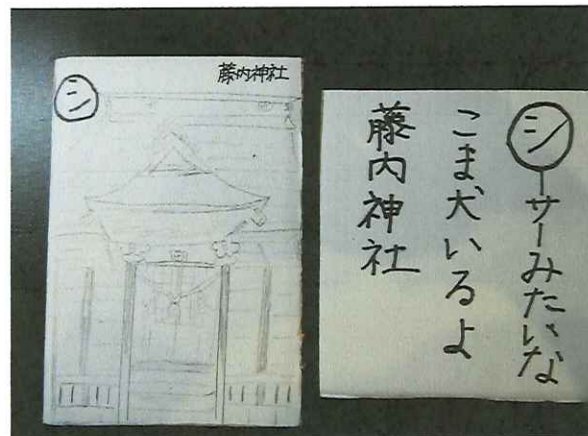 藤内神社
シ
シーサーみたいな
こま犬いるよ
藤内神社